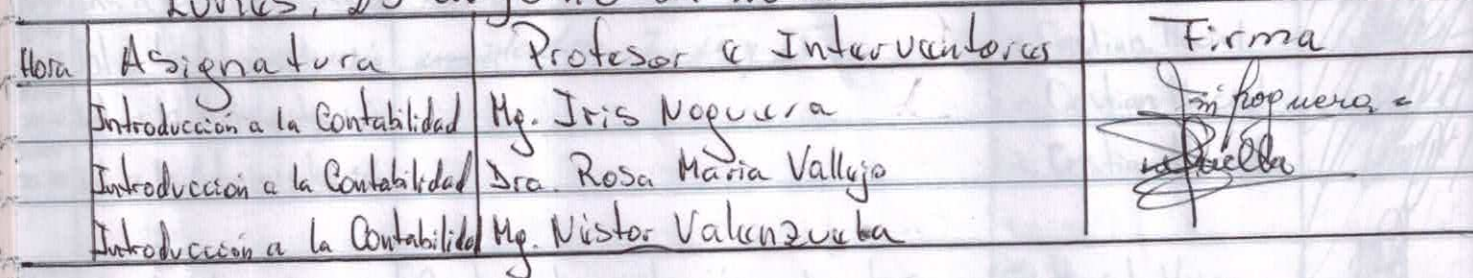 Hora Asignatura Profesor e Interventores Firma
Introducción a la Contabilidad Mg. Iris Noguera
Introducción a la Contabilidad Dra. Rosa María Vallejo
Introducción a la Contabilidad Mg. Néstor Valenzuela